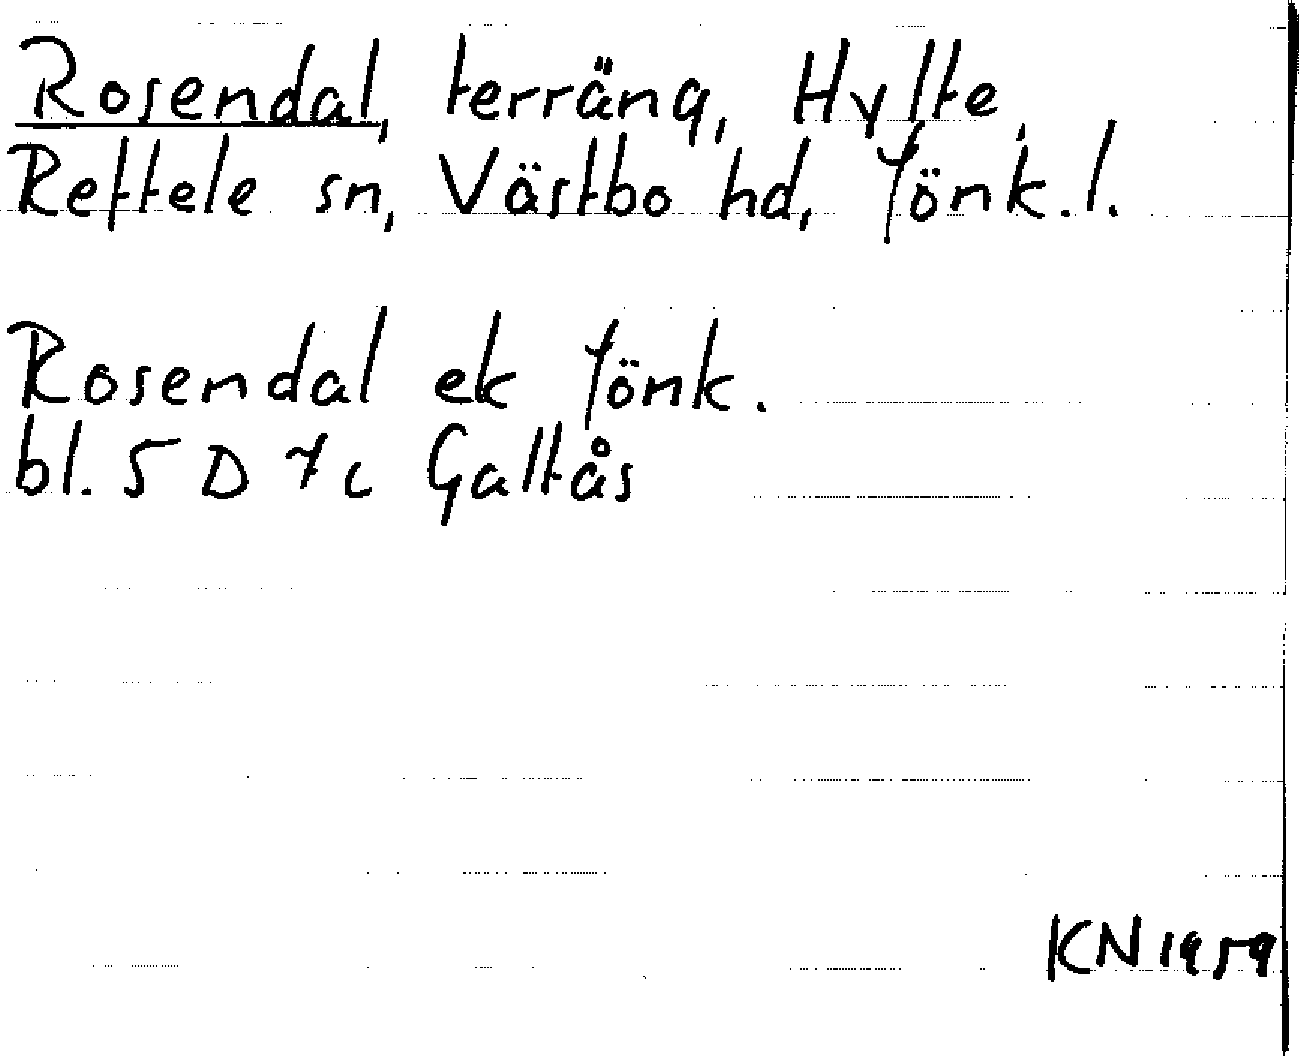 Rosendal, terräng, Hylte,
Reftele sn, Västbo hd, Jönk.l.
Rosendal ek Jönk.
bl. 5 D 7c Galtås
KN 1959